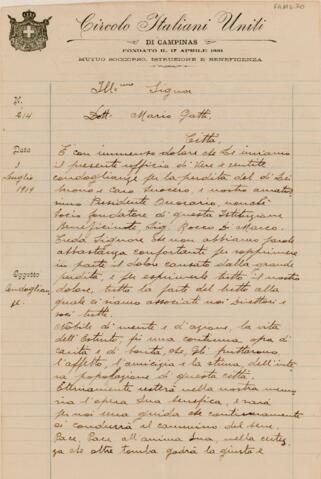 FAM 6.70
Circolo Italiani Uniti
DI CAMPINAS
FONDATO IL 17 APRILE 1881
MUTUO SOCCORSO, ISTRUZIONE E BENEFICENZA
Ill.mo Signor
N.
214
Dott. Mario Gatti.
Città.
Data
3
Luglio
1919
È con immenso dolore che Le inviamo
il presente ufficio di vive e sentite
condoglianze per la perdita del di Lei
buono e Caro Suocero, e nostro amatis
simo Presidente Onorario, nonchè
Socio fondatore di questa Istituzione
Beneficiente, Sig. Rocco Di Marco.
Creda Signore che non abbiamo parole
abbastanza confortanti per esprimere
in parte il dolore causato dalla grande
perdita, e per esprimerle tutto il nostro
Oggetto
Condoglian
ze.
dolore, tutta la parte del lutto alla
quale ci siamo associati noi Direttori e
soci tutti.
Nobile di mente e d'azione, la vita
dell'Estinto, fu una continua opra di
carità e di bontà, che gli fruttarono
l'affetto, l'amicizia e la stima dell'inte
ra popolazione di questa città.
Eternamente resterà nella nostra memo
ria l'opera Sua benefica, e sarà
per noi una guida che continuamente
ci condurrà al cammino del bene.
Pace, Pace all'anima Sua, nella certez
za che oltre tomba godrà la giusta e